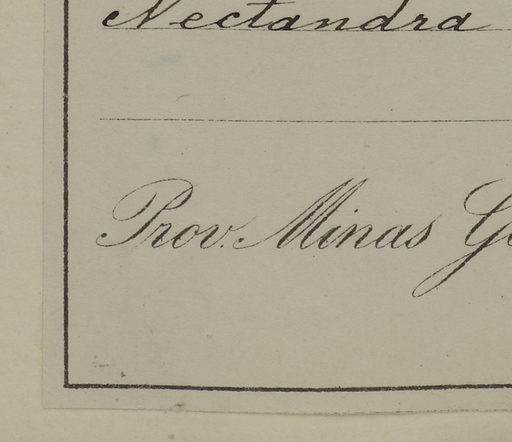 Nectandra
Prov. Minas Ge